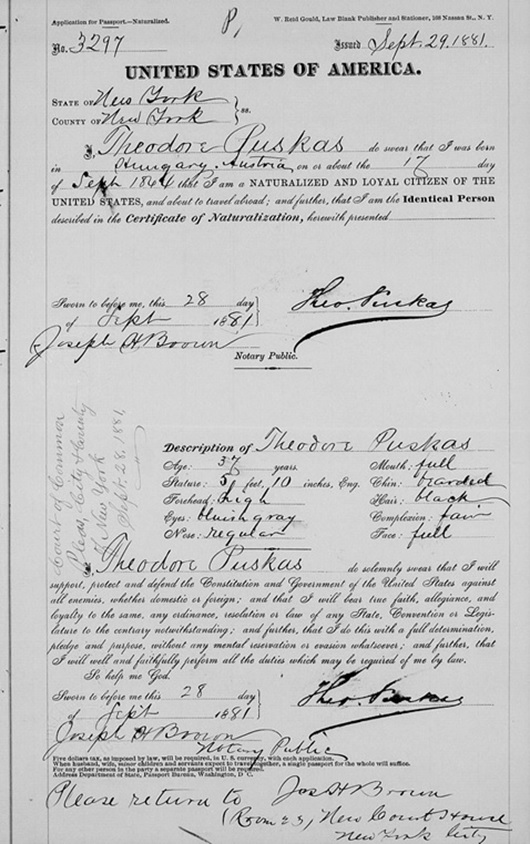 Application for Passport.—Naturalized.
P,
W. Reid Gould, Law Blank Publisher and Stationer, 168 Nassau St., N. Y.
No. 3297
Issued Sept. 29. 1881.
UNITED STATES OF AMERICA.
STATE OF New York
COUNTY OF New York } ss.
I, Theodore Puskas do swear that I was born
in Hungary, Austria, on or about the 17 day
of Sept 1844 that I am a NATURALIZED AND LOYAL CITIZEN OF THE
UNITED STATES, and about to travel abroad; and further, that I am the Identical Person
described in the Certificate of Naturalization, herewith presented
Sworn to before me, this 28 day
of Sept 1881
Theo. Puskas
Joseph H Brown
Notary Public.
Court of Common
Pleas, City & County
of New York
Sept. 28, 1881,
Description of Theodore Puskas
Age: 37 years. Mouth: full
Stature: 5 feet, 10 inches, Eng. Chin: bearded
Forehead: high Hair: black
Eyes: bluish gray Complexion: fair
Nose: regular Face: full
I, Theodore Puskas do solemnly swear that I will
support, protect and defend the Constitution and Government of the United States against
all enemies, whether domestic or foreign; and that I will bear true faith, allegiance, and
loyalty to the same, any ordinance, resolution or law of any State, Convention or Legis-
lature to the contrary notwithstanding; and further, that I do this with a full determination,
pledge and purpose, without any mental reservation or evasion whatsoever; and further, that
I will well and faithfully perform all the duties which may be required of me by law.
So help me God.
Sworn to before me this 28 day
of Sept 1881
Theo. Puskas
Joseph H Brown
Notary Public
Five dollars tax, as imposed by law, will be required, in U. S. currency, with each application.
When husband, wife, minor children and servants expect to travel together, a single passport for the whole will suffice.
For any other person in the party a separate passport will be required.
Address Department of State, Passport Bureau, Washington, D C.
Please return to Jos H Brown
(Room 23, New Court House
New York City